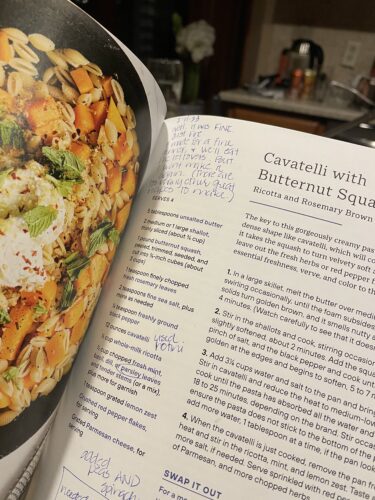 meh. IT WAS FINE.
& we'll eat
the leftovers. But
make it
again. (There are
so many other great
meals to make!)
Cavatelli with
Butternut Squa
Ricotta and Rosemary Brown
The key to this gorgeously creamy pas
dense shape like cavatelli, which will co
it takes the squash to turn velvety soft a
essential freshness, verve, and color to th
SERVES 4
5 tablespoons unsalted butter
1 medium or 1 large shallot,
thinly sliced (about ¾ cup)
1 pound butternut squash,
peeled, trimmed, seeded, and
cut into ¾-inch cubes (about
3 cups)
1 tablespoon finely chopped
fresh rosemary leaves
2 teaspoons fine sea salt, plus
more as needed
½ teaspoon freshly ground
black pepper
12 ounces cavatelli
½ cup whole-milk ricotta
½ cup chopped fresh mint,
basil, dill, or parsley leaves
and tender stems (or a mix),
plus more for garnish
1 teaspoon grated lemon zest
Crushed red pepper flakes,
for serving
Grated Parmesan cheese, for
serving
used
added
peas AND
spinach
needed
1. In a large skillet, melt the butter over mediu
swirling occasionally, until the foam subsides
solids turn golden brown, and it smells nutty a
4 minutes. (Watch carefully to see that it does
2. Stir in the shallots and cook, stirring occasion
slightly golden, about 2 minutes. Add the squas
pinch of salt, and the black pepper and cook un
golden at the edges and begins to soften, 5 to 7 m
3. Add 3¾ cups water and salt to the pan and bring
Stir in cavatelli and reduce the heat to medium-low
cook until the pasta has absorbed all the water and
18 to 25 minutes, depending on the brand. Stir occas
ensure the pasta does not stick to the bottom of the p
add more water, 1 tablespoon at a time, if the pan look
4. When the cavatelli is just cooked, remove the pan fr
heat and stir in the ricotta, mint, and lemon zest. Taste
more salt, if needed. Serve sprinkled with red pepper
of Parmesan, and more chopped herbs
SWAP IT OUT
For a m